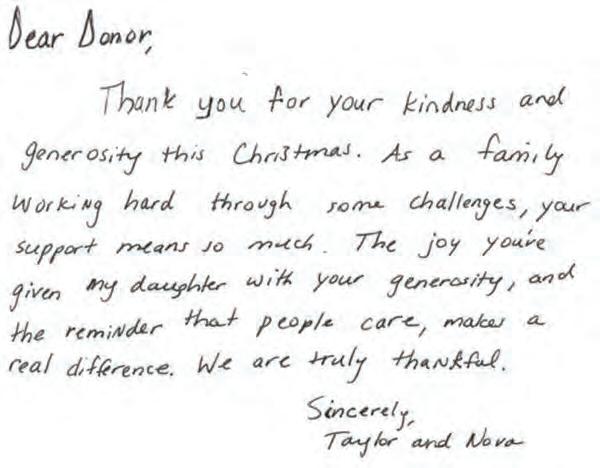 Dear Donor,
Thank you for your kindness and
generosity this Christmas. As a family
working hard through some challenges, your
support means so much. The joy you've
given my daughter with your generosity, and
the reminder that people care, makes a
real difference. We are truly thankful.
Sincerely,
Taylor and Nova